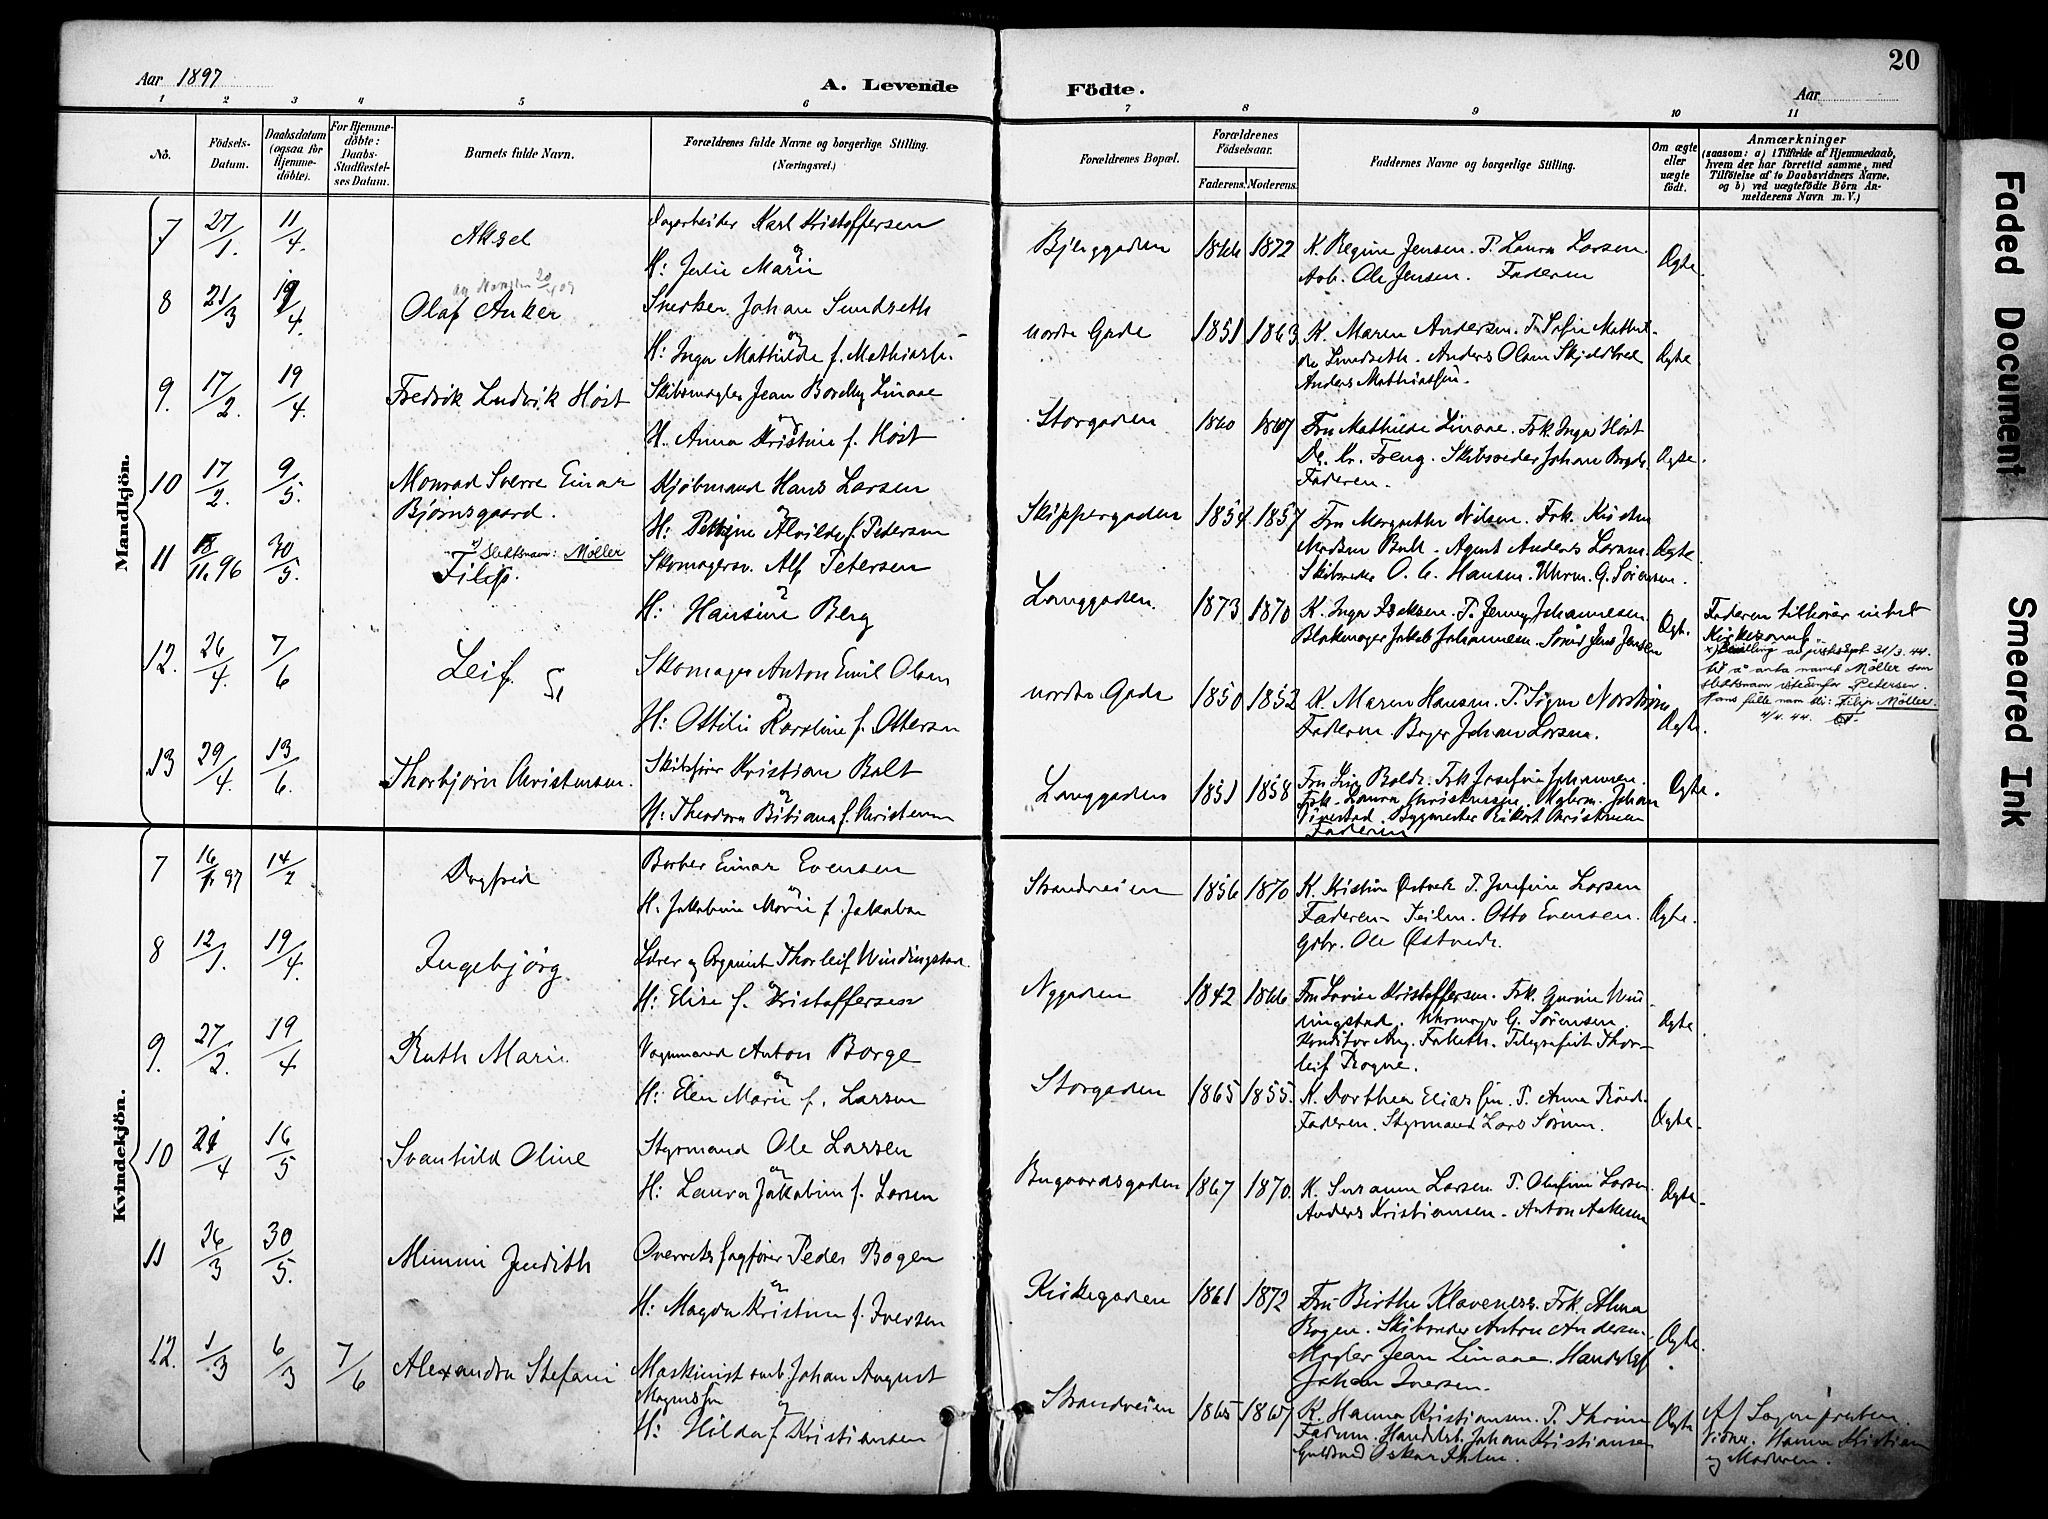 Aar 1897
A. Levende
Födte.
Aar
20
1 2 3 4 5 6 7 8 9 10 11
No.
Födsels-
Datum.
Daabsdatum
(ogsaa for
Hjemme-
döbte).
For Hjemme-
döbte:
Daabs-
Stadfæstel-
ses Datum.
Barnets fulde Navn.
Forældrenes fulde Navne og borgerlige Stilling.
(Næringsvei.)
Forældrenes Bopæl.
Forældrenes
Födselsaar.
Faderens. Moderens.
Faddernes Navne og borgerlige Stilling.
Om ægte
eller
uægte
födt.
Anmærkninger
(saasom: a) i Tilfælde af Hjemmedaab,
hvem der har forrettet samme, med
Tilföielse af to Daabsvidners Navne.
og b) ved uægtefödte Börn An-
melderens Navn m. V.)
Mandkjön.
7 27/1. 11/4. Aksel
Dagarbeider Karl Kristoffersen
og
H: Julie Marie
Bjerggaden 1866 1872
K. Regine Jensen. P. Laura Larsen.
Arb. Ole Jensen. Faderen
Ægte.
8 21/3 19/4. Olaf Anker
Snerker Johan Sundseth
og
H: Inga Mathilde f. Mathiass.
nordre Gade 1851 1863
K. Maren Andersen. P. Sofie Mathil-
de Sundseth. Anders Olsen
Anders Mathiassen.
Ægte
9. 17/2. 19/4. Fredrik Ludvik Höst
Skibsmægler Jean Linaae
og
H. Anna Kristine f. Höst
Storgaden 1860 1867
Fru Mathilde Linaae. Frk. Inga Höst
Dr. Kr. Freng. Skibsreder Johan
Faderen.
Ægte.
10 17/2. 9/5. Monrad Sverre Einar
Bjørnsgaard.
Kjöbmand Hans Larsen
og
H: Alvilde f. Pedersen
Skippergaden 1854 1857
Fru Margrethe Nilsen. Frk. Kirsten
Madsen Bull. Agent Anders Larsen
Skibsreder O. C. Hansen. Uhrm. G. Sörensen.
Ægte
11 18/11.96 30/5. x) Slektsnavn: Möller
Filip.
Skomagersv. Alf Petersen
og
H: Hansine Berg
Langgaden. 1873 1870
K. Inga Isaksen. P. Jenny Johannesen
Blokmager Jakob Johannesen. Smed Jens Jensen
Ægte.
Faderen tilhörer intet
Kirkesamf.
x) Bevilling av justisdept. 31/3.44.
til å anta navnet Möller som
slektsnavn istedenfor Petersen.
Hans fulle navn blir: Filip Möller.
4/4.44.
12. 26/4. 7/6 Leif.
Skomager Anton Emil Olsen
og
H: Ottilie Karoline f. Ottersen
nordre Gade 1850 1852
K. Maren Hansen. P. Signe Nordström
Faderen. Bager Johan Larsen.
Ægte.
13 29/4. 13/6. Thorbjörn Christensen.
Skibsförer Kristian Bolt
og
H: Theodora Bibiana f. Christensen
Langgaden 1851 1858
Fru Bolt. Frk Josefine Johannesen.
Frk. Laura Christensen. Mglerm. Johan
Bygmester Eilert Christensen
Faderen
Ægte.
Kvindekjön.
7 16/1. 97 14/2 Dagfrid
Barber Einar Evensen
og
H: Jakobine Marie f. Jakobsen
Strandveien 1856 1870
K. Kristine Østvedt P. Josefine Larsen
Faderen. Seilm. Otto Evensen.
Gdbr. Ole Østvedt.
Ægte.
8 12/1. 19/4. Ingebjörg.
Lærer og Organist Thorleif Windingstad.
og
H: Elise f. Kristoffersen
Nygaden 1842 1866
Fru Lovise Kristoffersen. Frk. Gurine Win-
dingstad. Uhrmager G. Sörensen.
Konditor Aug. Falketh. Telegrafist Thor-
leif Rogne.
Ægte
9. 27/2. 19/4 Ruth Marie
Vognmand Anton Borge
og
H: Elen Marie f. Larsen
Storgaden 1865 1855.
K. Dorthea Eliassen. P. Anna
Faderen. Styrmand Lars Sörum.
Ægte.
10 21/4 16/5 Svanhild Oline
Styrmand Ole Larsen
og
H: Laura Jakobine f. Larsen
Bugaardsgaden 1867 1870.
K. Susanne Larsen. P. Olufine Larsen
Anders Kristiansen. Anton
Ægte.
11 26/3 30/5. Mimmi Judith
Overretssagförer Peder Bogen
og
H: Magda Kristine f. Iversen
Kirkegaden 1861 1872
Fru Birthe Klaveness. Frk. Alma
Bogen. Skibsreder Anton Andersen.
Mægler Jean Linaae. Handelsf.
Johan Iversen.
Ægte.
12. 1/3 6/3 7/6 Alexandra Stefani
Maskinist omb. Johan August
Magnussen
og
H: Hilda f. Kristiansen
Strandveien 1865 1867
K. Hanna Kristiansen. P.
Faderen. Handelsb. Johan Kristiansen
Guldsmed Oskar Ihlen.
Ægte
Af Sognepresten.
Vidner: Hanna Kristiansen
og Moderen.
Faded Document
Smeared Ink